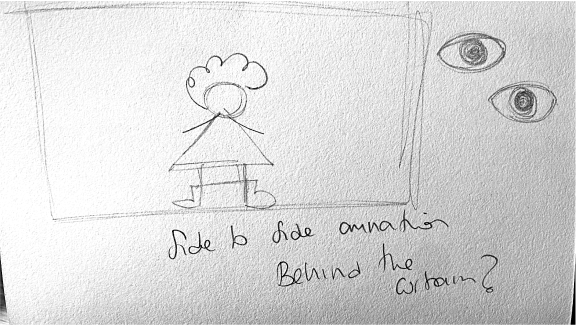 Side to Side animation
Behind the
curtain?